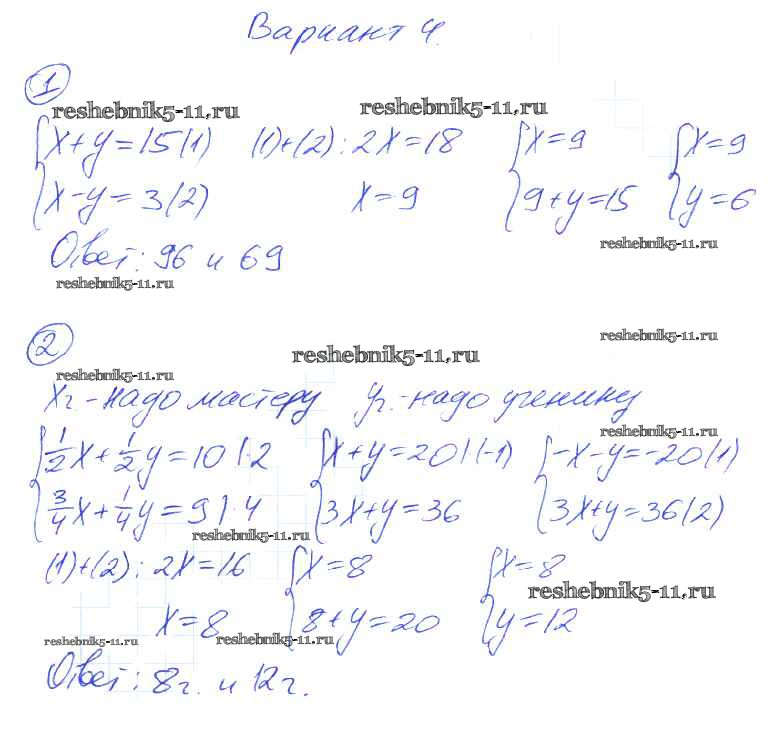 Вариант 4.
1
reshebnik5-11.ru reshebnik5-11.ru
x+y=15(1) (1)+(2): 2x=18 x=9 x=9
x-y=3(2) x=9 9+y=15 y=6
reshebnik5-11.ru
Ответ: 96 и 69
reshebnik5-11.ru
2
reshebnik5-11.ru
reshebnik5-11.ru
reshebnik5-11.ru
xг.-надо мастеру yг.-надо ученику
reshebnik5-11.ru
1/2x+1/2y=10|·2 x+y=20|(-1) -x-y=-20(1)
3/4x+1/4y=9|·4 3x+y=36 3x+y=36(2)
reshebnik5-11.ru
(1)+(2): 2x=16 x=8 x=8
reshebnik5-11.ru
x=8 8+y=20 y=12
reshebnik5-11.ru reshebnik5-11.ru
Ответ: 8г. и 12г.